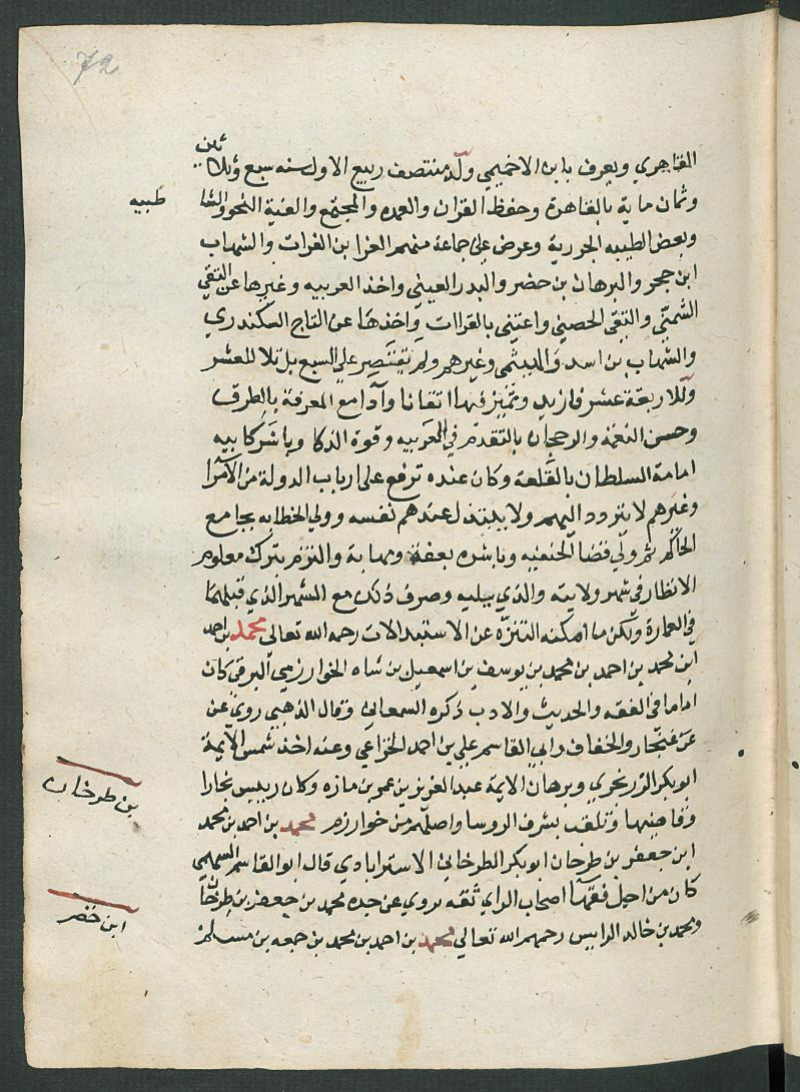 72
القاهري ويعرف بابن الاخميمي ولد منتصف ربيع الاول سنه سبع وثلاثين
وثمان ماية بالقاهرة وحفظ القران والعمده والمجتمع والفية النحو والشا
طبيه
وبعض الطيبه الجزرية وعرض على جماعة منهم العز ابن الفرات والشهاب
ابن حجر والبرهان بن حضر والبدر العيني واخذ العربيه وغيرها عن التقي
الشمني والتقي الحصني واعتنى بالقراات واخذها عن التاج السكندري
والشهاب بن اسد والهيثمي وغيرهم ولم يقتصر على السبع بل تلا للعشر
وللاربعة عشر فازيد وتميز فيها اتقانا وادا مع المعرفة بالطرق
وحسن النغمة والرجحان بالتقدم في العربيه وقوة الذكا وباشر كابيه
امامة السلطان بالقلعة وكان عنده ترفع على ارباب الدولة من الامرا
وغيرهم لا يتردد اليهم ولا يبتذل عندهم نفسه وولي الخطابه بجامع
الحاكم ثم ولي قضا الحنفيه وباشره بعفة ومهابة والتزم بترك معلوم
الانظار في شهر ولايته والذي يليه وصرف ذلك مع الشهر الذي قبلهما
في العمارة ولكن ما امكنه التنزه عن الاستبدالات رحمه الله تعالى محمد بن احمد
ابن محمد بن احمد بن محمد بن يوسف بن اسمعيل بن شاه الخوارزمي البرقي كان
اماما في الفقه والحديث والادب ذكره السمعاني وقال الذهبي روى عن
عن غنجار والخفاف وابي القاسم علي بن احمد الخزاعي وعنه اخذ شمس الايمة
ابوبكر الزرنجري وبرهان الايمة عبد العزيز بن عمر بن مازه وكان رييس بخارا
وقاضيها وتلقب بشرف الروسا واصلهم من خوارزم محمد بن احمد بن محمد
بن طرخان
ابن جعفر بن طرخان ابوبكر الطرخاني الاستراباذي قال ابو القاسم السهمي
كان من اجل فقها اصحاب الراي ثقه يروي عن جده محمد بن جعفر بن طرخان
ومحمد بن خالد الرابيس رحمهم الله تعالى محمد بن احمد بن محمد بن جمعه بن مسلم
ابن خضر